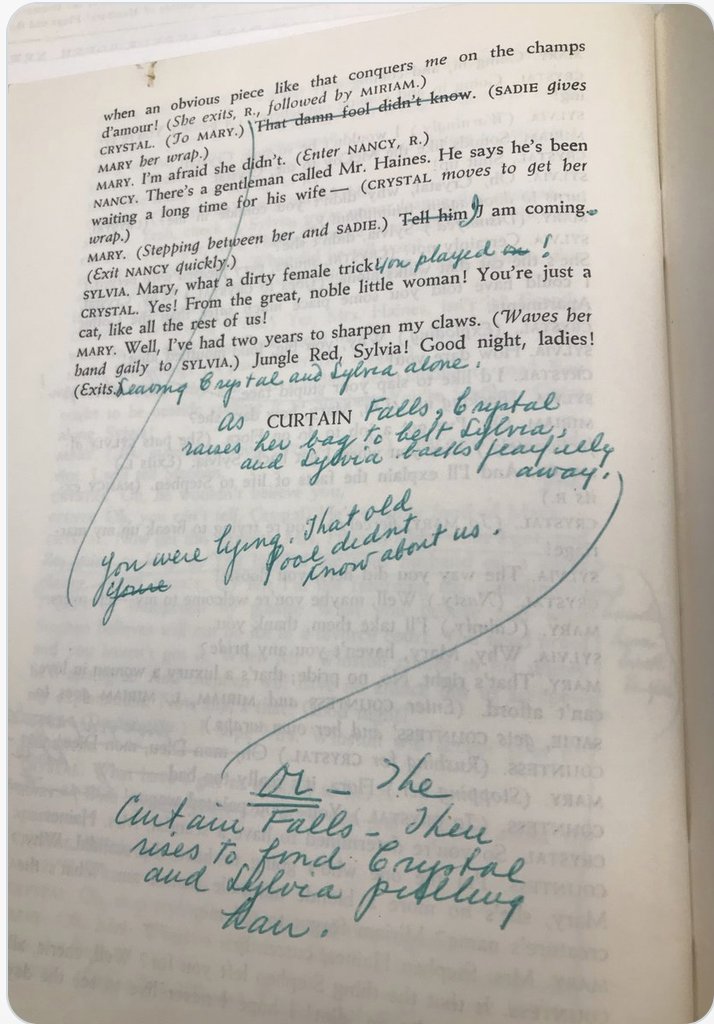 when an obvious piece like that conquers me on the champs
d'amour! (She exits, R., followed by MIRIAM.)
CRYSTAL. (To MARY.) That damn fool didn't know. (SADIE gives
MARY her wrap.)
MARY. I'm afraid she didn't. (Enter NANCY, R.)
NANCY. There's a gentleman called Mr. Haines. He says he's been
waiting a long time for his wife — (CRYSTAL moves to get her
wrap.)
MARY. (Stepping between her and SADIE.) Tell him I am coming.
(Exit NANCY quickly.)
SYLVIA. Mary, what a dirty female trick you played on!
CRYSTAL. Yes! From the great, noble little woman! You're just a
cat, like all the rest of us!
MARY. Well, I've had two years to sharpen my claws. (Waves her
hand gaily to SYLVIA.) Jungle Red, Sylvia! Good night, ladies!
(Exits. Leaving Crystal and Sylvia alone.
As CURTAIN Falls, Crystal
raises her bag to belt Sylvia,
and Sylvia backs fearfully
away.
You were lying. That old
Youre fool didn't
know about us.
Or - The
Curtain Falls - Then
rises to find Crystal
and Sylvia pulling
hair.